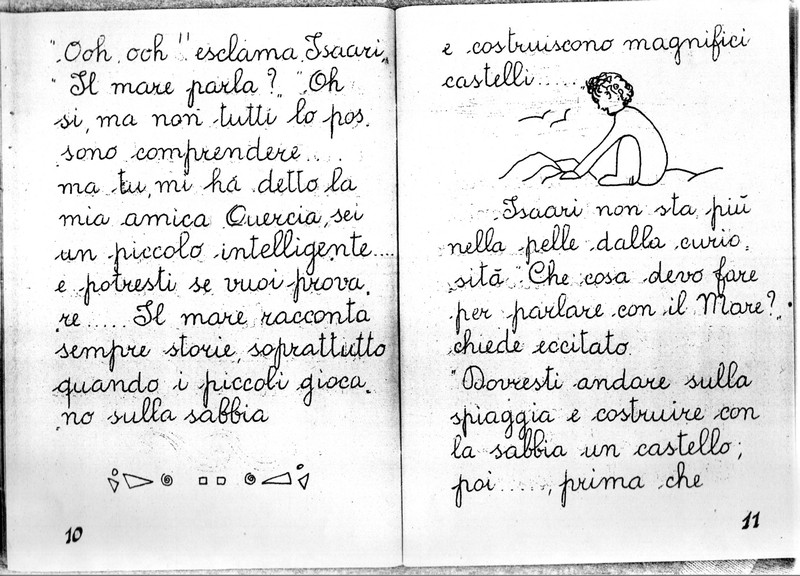 "Ooh, ooh" esclama Isaari,
"Il mare parla?" "Oh
si, ma non tutti lo pos.
sono comprendere....
ma tu, mi há detto la
mia amica Quercia, sei
un piccolo intelligente....
e potresti se vuoi prova.
re..... Il mare racconta
sempre storie, soprattutto
quando i piccoli gioca.
no sulla sabbia
10
e costruiscono magnifici
castelli......
Isaari non sta piú
nella pelle dalla curio.
sitá "Che cosa devo fare
per parlare con il Mare?"
chiede eccitato.
"Dovresti andare sulla
spiaggia e costruire con
la sabbia un castello;
poi....., prima che
11